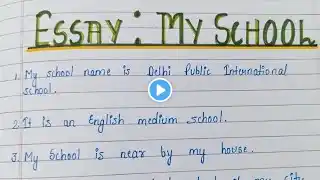 ESSAY : MY SCHOOL
1. My school name is Delhi Public International
school.
2. It is an English medium school.
3. My School is near by my house.
my city